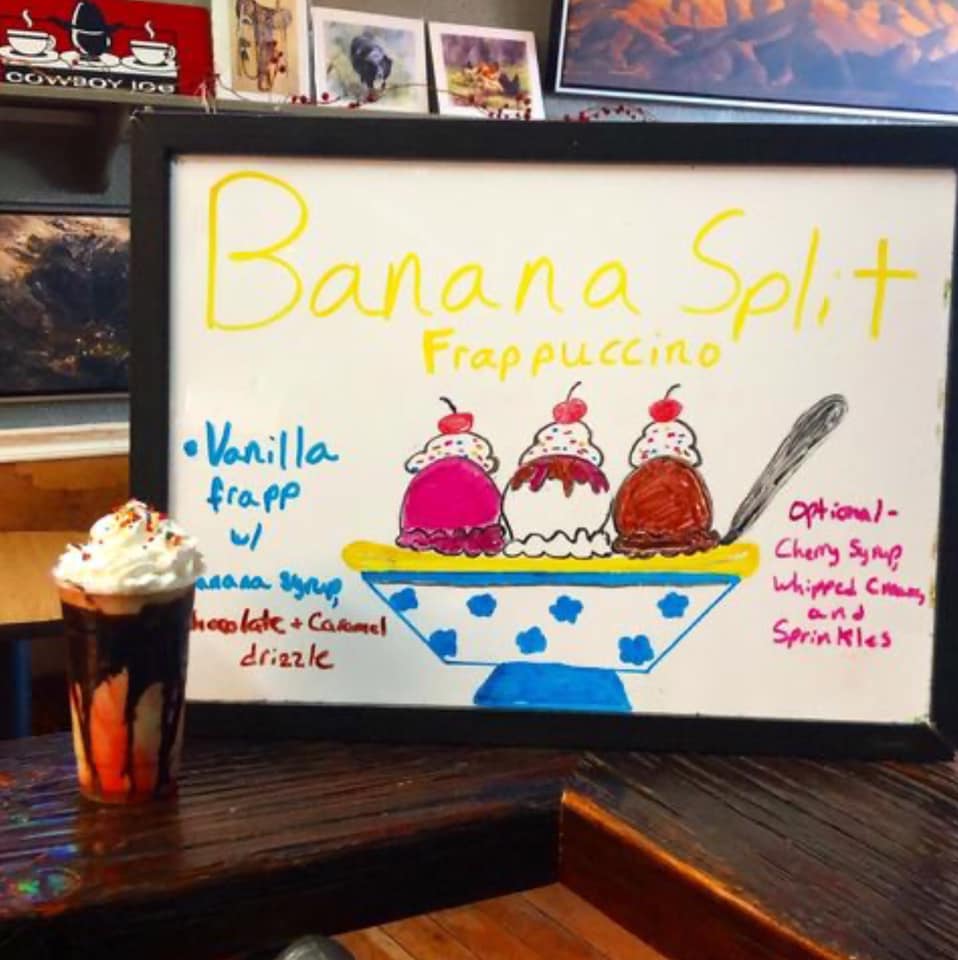 COWBOY JOE
Banana Split
Frappuccino
• Vanilla
frapp
w/
anana Syrup,
hocolate + Caramel
drizzle
Optional-
Cherry Syrup,
Whipped Cream,
and
Sprinkles